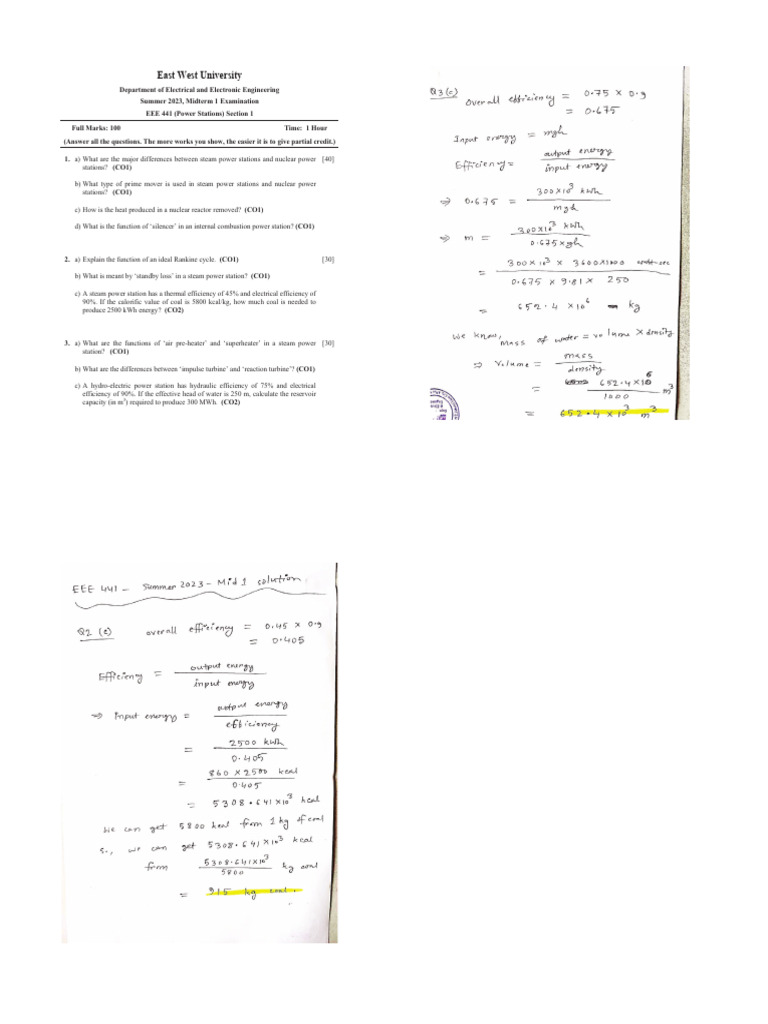 East West University
Department of Electrical and Electronic Engineering
Summer 2023, Midterm 1 Examination
EEE 441 (Power Stations) Section 1
Full Marks: 100 Time: 1 Hour
(Answer all the questions. The more works you show, the easier it is to give partial credit.)
1. a) What are the major differences between steam power stations and nuclear power [40]
stations? (CO1)
b) What type of prime mover is used in steam power stations and nuclear power
stations? (CO1)
c) How is the heat produced in a nuclear reactor removed? (CO1)
d) What is the function of 'silencer' in an internal combustion power station? (CO1)
2. a) Explain the function of an ideal Rankine cycle. (CO1) [30]
b) What is meant by 'standby loss' in a steam power station? (CO1)
c) A steam power station has a thermal efficiency of 45% and electrical efficiency of
90%. If the calorific value of coal is 5800 kcal/kg, how much coal is needed to
produce 2500 kWh energy? (CO2)
3. a) What are the functions of 'air pre-heater' and 'superheater' in a steam power [30]
station? (CO1)
b) What are the differences between 'impulse turbine' and 'reaction turbine'? (CO1)
c) A hydro-electric power station has hydraulic efficiency of 75% and electrical
efficiency of 90%. If the effective head of water is 250 m, calculate the reservoir
capacity (in m³) required to produce 300 MWh. (CO2)
Q3 (c) Overall efficiency = 0.75 × 0.9
= 0.675
Input energy = mgh
Efficiency = output energy / input energy
⇒ 0.675 = 300×10³ kWh / mgh
⇒ m = 300×10³ kWh / 0.675×gh
= 300×10³ × 3600×1000 watt-sec / 0.675 × 9.81 × 250
= 652.4 × 10⁶ kg
We know, mass of water = volume × density
⇒ Volume = mass / density
= 652.4×10⁶ / 1000 m³
= 652.4 × 10³ m³
EEE 441 – Summer 2023 – Mid 1 solution
Q2 (c) overall efficiency = 0.45 × 0.9
= 0.405
Efficiency = output energy / input energy
⇒ Input energy = output energy / efficiency
= 2500 kWh / 0.405
= 860 × 2500 kcal / 0.405
= 5308.641×10³ kcal
We can get 5800 kcal from 1 kg of coal
So, we can get 5308.641×10³ kcal
from 5308.641×10³ / 5800 kg coal
= 915 kg coal.